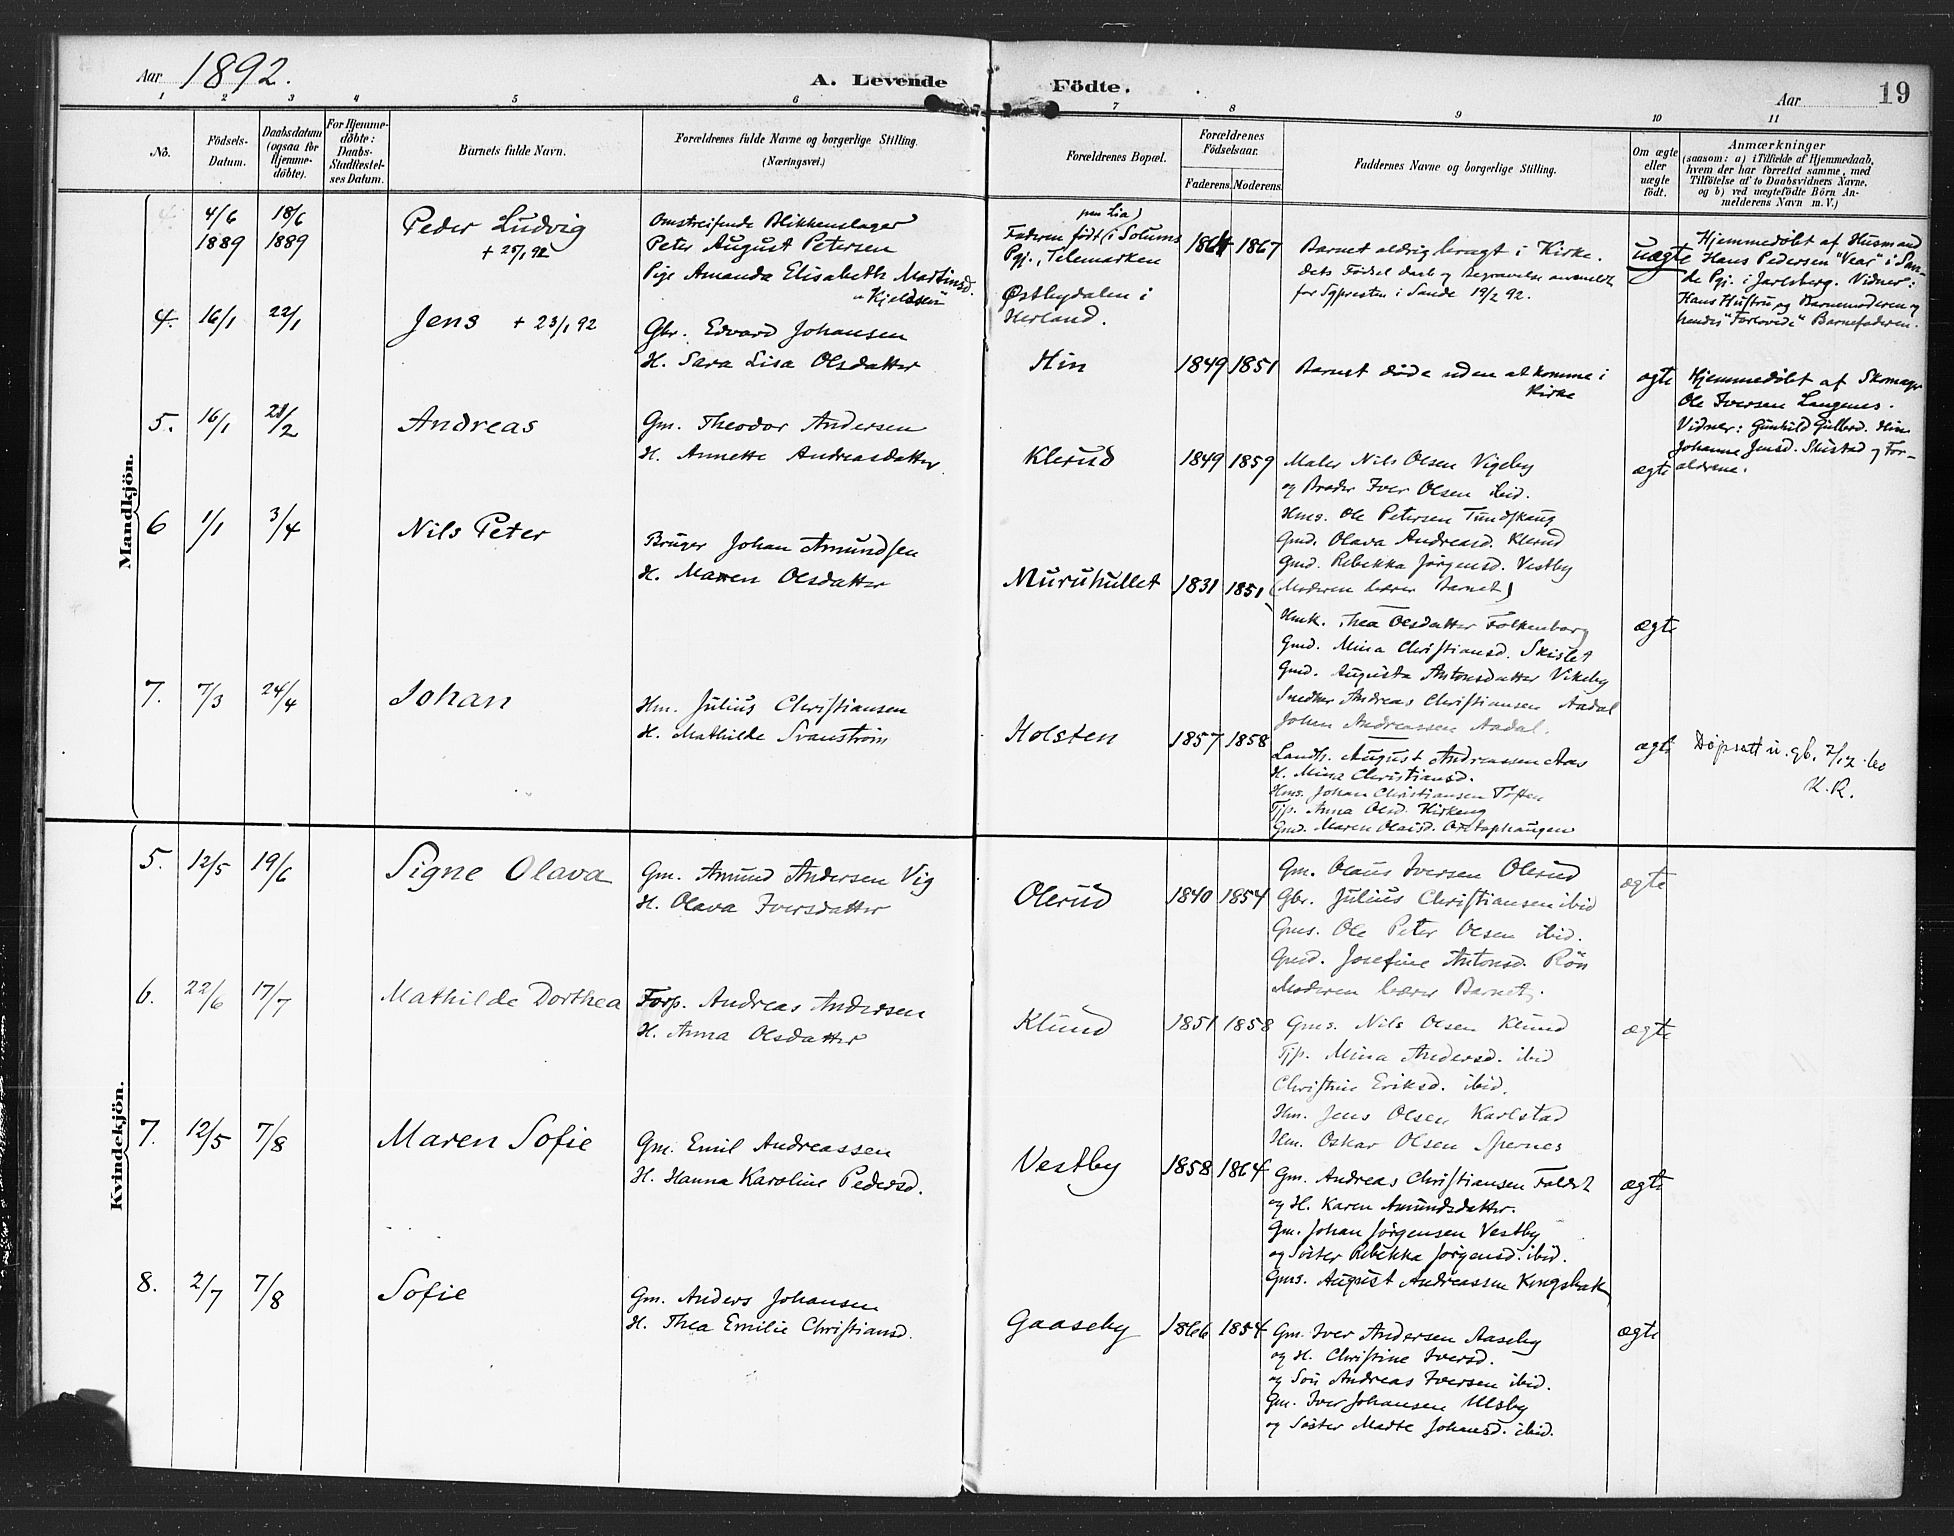 Aar 1892.
A. Levende Födte.
Aar 19
1 2 3 4 5 6 7 8 9 10 11
No.
Födsels-Datum.
Daabsdatum (ogsaa for Hjemme-döbte).
For Hjemme-döbte: Daabs-Stadfæstel-ses Datum.
Barnets fulde Navn.
Forældrenes fulde Navne og borgerlige Stilling.
(Næringsvei.)
Forældrenes Bopæl.
Forældrenes Födselsaar.
Faderens. Moderens.
Faddernes Navne og borgerlige Stilling.
Om ægte eller uægte födt.
Anmærkninger
(saasom: a) i Tilfælde af Hjemmedaab,
hvem der har forrettet samme, med
Tilföielse af to Daabsvidners Navne,
og b) ved uægtefödte Börn An-
melderens Navn m. V.)
Mandkjön.
4/6 1889 18/6 1889 Peder Ludvig
+ 25/1 92
Omstreifende Blikkenslager
Peter August Petersen
Pige Amanda Elisabeth Martinsd.
Kjeldsen
Faderen født (i Solums
Pgj., Telemarken
Østbydalen i
1864 1867
Barnet aldrig bragt i Kirke.
dets Fødsel daab og Begravelse anmeldt
for Sgpresten i Sande 19/2 92.
uægte
Hjemmedøbt af Husmand
Hans Pedersen "Vear" i San-
de Pgj. i Jarlsberg. Vidner:
Hans Hustru og Barnemoderen og
hendes "Forlovede" Barnefaderen.
4. 16/1 22/1 Jens + 23/1 92
Gbr. Edvard Johansen
H. Sara Lisa Olsdatter
Hin 1849 1851
Barnet døde uden at komme i
Kirke
ægte
Hjemmedøbt af Skomager
Ole Iversen Langenes.
Vidner: Gunhild Gulbrd. Hin
Johanne Jensd. Skustad og For-
ældrene.
5. 16/1 28/2 Andreas
Gm. Theodor Andersen
H. Annette Andreasdatter
Klerud 1849 1859
Maler Nils Olsen Vigeby
og Broder Iver Olsen ibid.
Hms. Ole Petersen Tundskaug
Gmd. Olava Andreasd. Klerud
Gmd. Rebekka Jørgensd. Vestby
(Moderen bærer Barnet)
ægte
6 1/1 3/4 Nils Peter
Bruger Johan Amundsen
H. Maren Olsdatter
Muruhullet 1831 1851
Hmk. Thea Olsdatter Falkenborg
Gmd. Mina Christiansd. Skislet
Gmd. Augusta Antonsdatter Vikeby
Snedker Andreas Christiansen Aadal
Johan Andreassen Aadal.
ægte
7. 7/3 24/4 Johan
Hm. Julius Christiansen
H. Mathilde Svanström
Holsten 1857 1858
Landh. August Andreassen Aas
H. Mina Christiansd.
Hms. Johan Christiansen Toften
Tjp. Anna Olsd. Kirkeng
Gmd. Maren Olaisd.
ægte
Døpsatt u. gb. 7/12
K.R.
Kvindekjön.
5. 12/5 19/6 Signe Olava
Gm. Amund Andersen Vig
H. Olava Iversdatter
Olerud 1840 1854
Gm. Olaus Iversen Olerud
Gbr. Julius Christiansen ibid
Gms. Ole Peter Olsen ibid.
Gmd. Josefine Antonsd. Røn
Moderen bærer Barnet.
ægte
6. 22/6 17/7 Mathilde Dorthea
Forp. Andreas Andersen
H. Anna Olsdatter
Klund 1851 1858
Gms. Nils Olsen Klund
Tjp. Mina Andersd. ibid
Christine Eriksd. ibid.
Hm. Jens Olsen Karlstad
Hm. Oskar Olsen Spernes
ægte
7. 12/5 7/8 Maren Sofie
Gm. Emil Andreassen
H. Hanna Karoline Pedersd.
Vestby 1858 1864
Gm. Andreas Christiansen Faldet
og H. Karen Amundsdatter.
Gm. Johan Jørgensen Vestby
og Søster Rebekka Jørgensd. ibid.
Gms. August Andreassen Kongsbak
ægte
8. 2/7 7/8 Sofie
Gm. Anders Johansen
H. Thea Emilie Christiansd.
Gaaseby 1866 1854
Gm. Iver Andersen Aaseby
og H. Christine Iversd.
og Søn Andreas Iversen ibid.
Gm. Iver Johansen Ulsby
og Søster Marte Johansd. ibid.
ægte